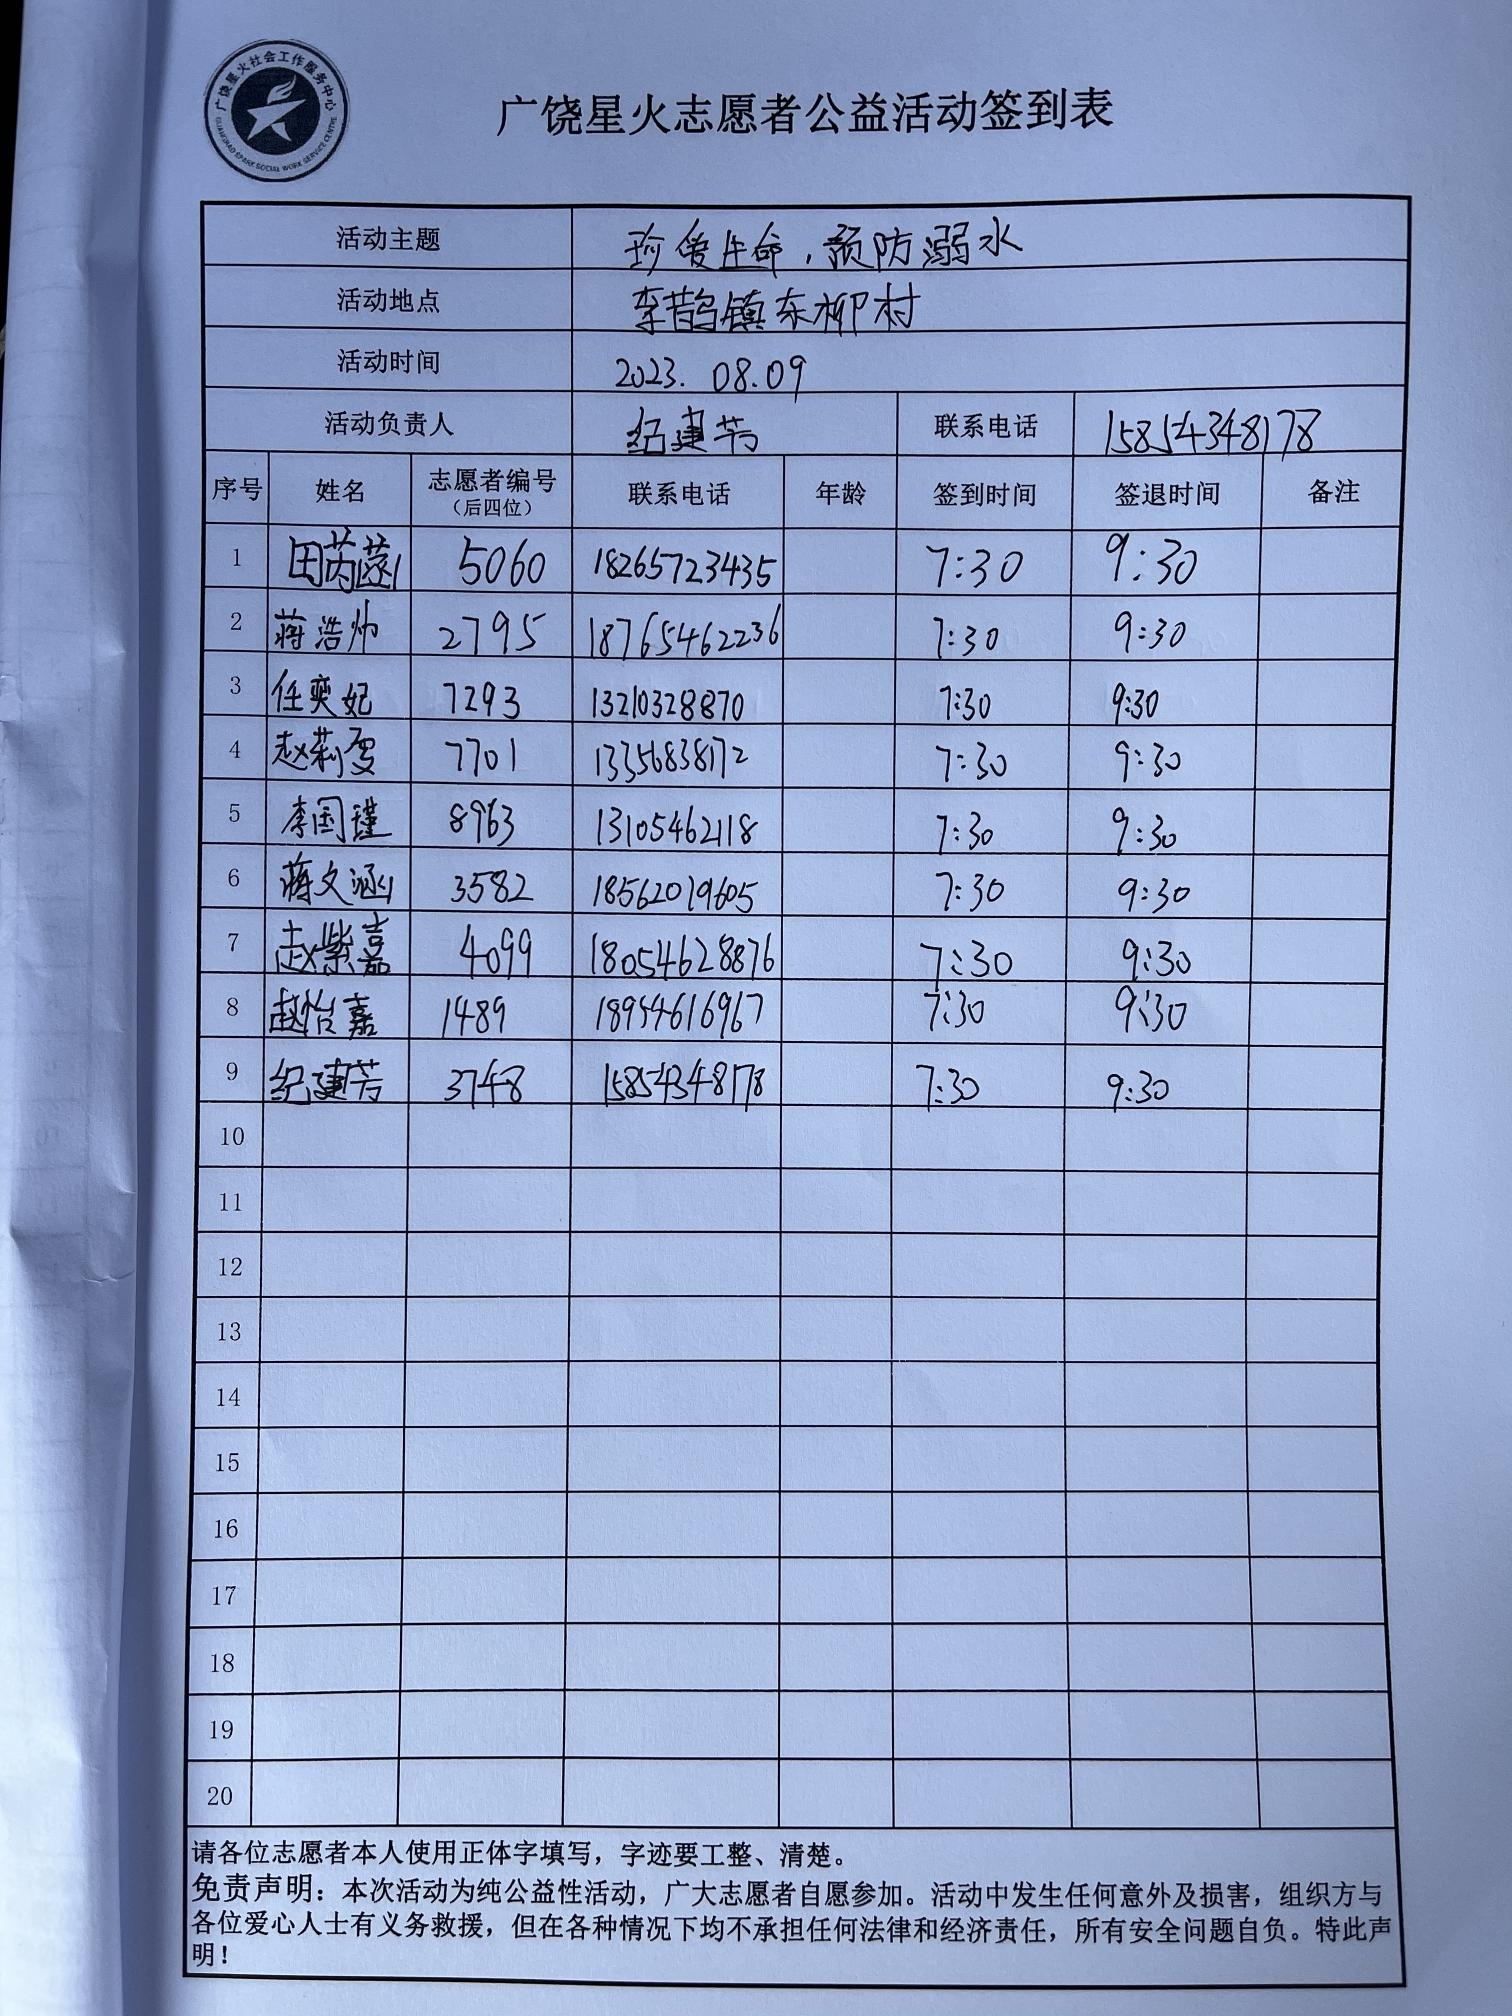 广饶星火社会工作服务中心
GUANGRAO SPARK SOCIAL WORK SERVICE CENTRE
广饶星火志愿者公益活动签到表
活动主题 珍爱生命，预防溺水
活动地点 李鹊镇东柳村
活动时间 2023.08.09
活动负责人 纪建芳 联系电话 15854348178
序号 姓名 志愿者编号 联系电话 年龄 签到时间 签退时间 备注
（后四位）
1 田芮 5060 18265723435 7:30 9:30
2 蒋浩帅 2795 18765462236 7:30 9:30
3 任奕妃 7293 13210328870 7:30 9:30
4 赵莉雯 7701 13356838172 7:30 9:30
5 李国瑾 8963 13105462118 7:30 9:30
6 蒋文涵 3582 18562019605 7:30 9:30
7 赵紫嘉 4099 18054628876 7:30 9:30
8 赵怡嘉 1489 18954616967 7:30 9:30
9 纪建芳 3748 15854348178 7:30 9:30
10
11
12
13
14
15
16
17
18
19
20
请各位志愿者本人使用正体字填写，字迹要工整、清楚。
免责声明：本次活动为纯公益性活动，广大志愿者自愿参加。活动中发生任何意外及损害，组织方与
各位爱心人士有义务救援，但在各种情况下均不承担任何法律和经济责任，所有安全问题自负。特此声
明！